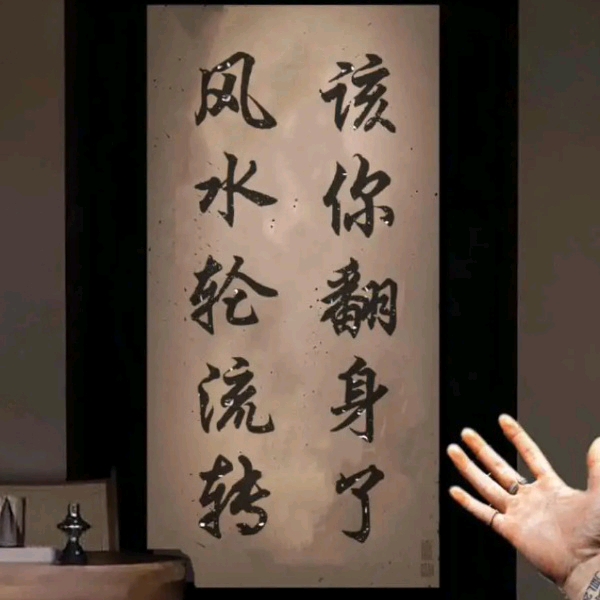 风水轮流转
该你翻身了